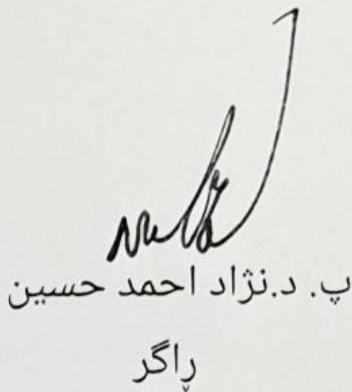 پ. د.نژاد احمد حسین
ڕاگر